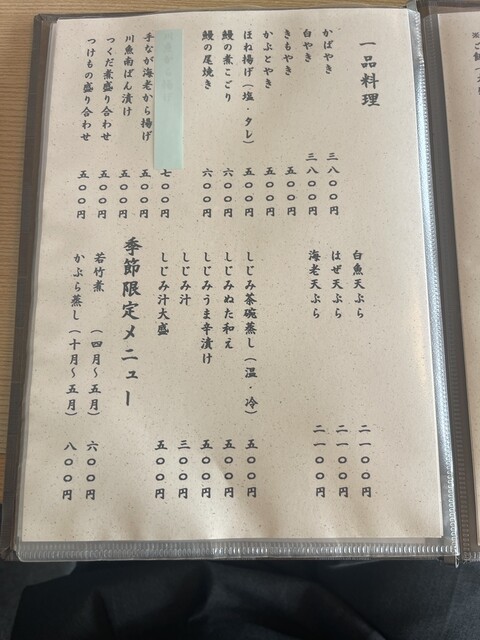 一品料理
かばやき 三八〇〇円
白やき 三八〇〇円
きもやき 五〇〇円
かぶとやき 五〇〇円
ほね揚げ（塩・タレ） 五〇〇円
鰻の煮こごり 六〇〇円
鰻の尾焼き 六〇〇円
七〇〇円
手なが海老から揚げ 五〇〇円
川魚南ばん漬け 五〇〇円
つくだ煮盛り合わせ 五〇〇円
つけもの盛り合わせ 五〇〇円
白魚天ぷら 二一〇〇円
はぜ天ぷら 二一〇〇円
海老天ぷら 二一〇〇円
しじみ茶碗蒸し（温・冷） 五〇〇円
しじみぬた和え 五〇〇円
しじみうま辛漬け 五〇〇円
しじみ汁 三〇〇円
しじみ汁大盛 五〇〇円
季節限定メニュー
若竹煮 （四月〜五月） 六〇〇円
かぶら蒸し（十月〜五月） 八〇〇円